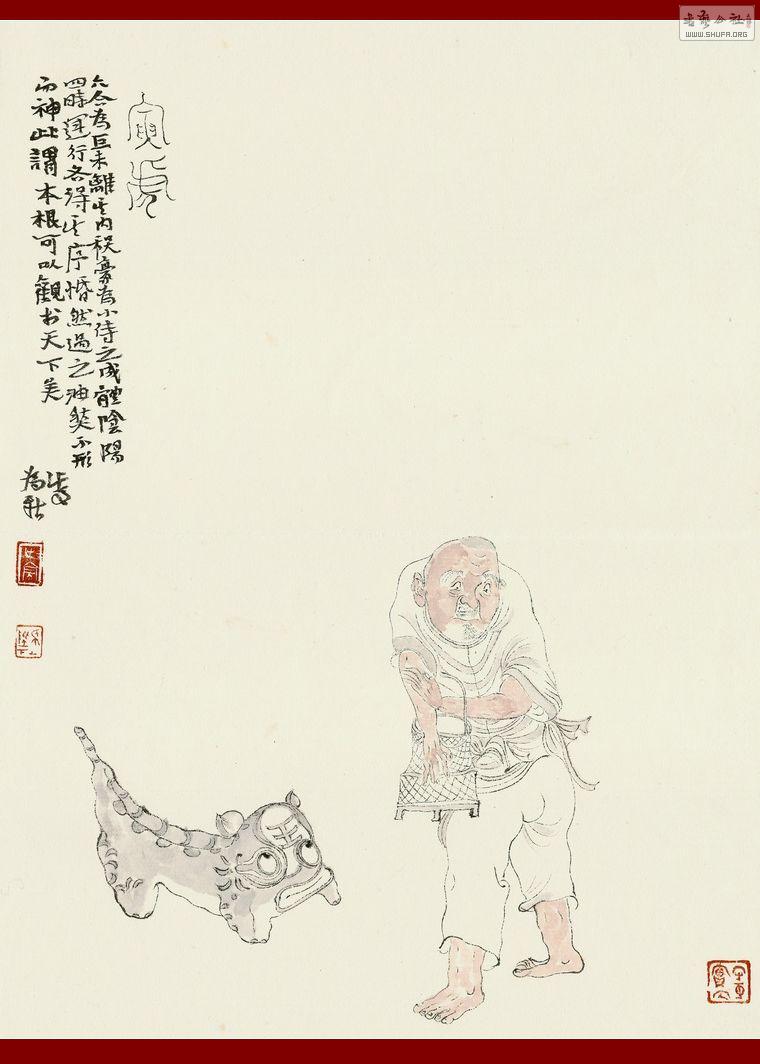 寅虎
六合為巨未離其內秋豪為小待之成體陰陽
四時運行各得其序惛然過之油然不形
而神此謂本根可以觀於天下美
書藝公社
WWW.SHUFA.ORG